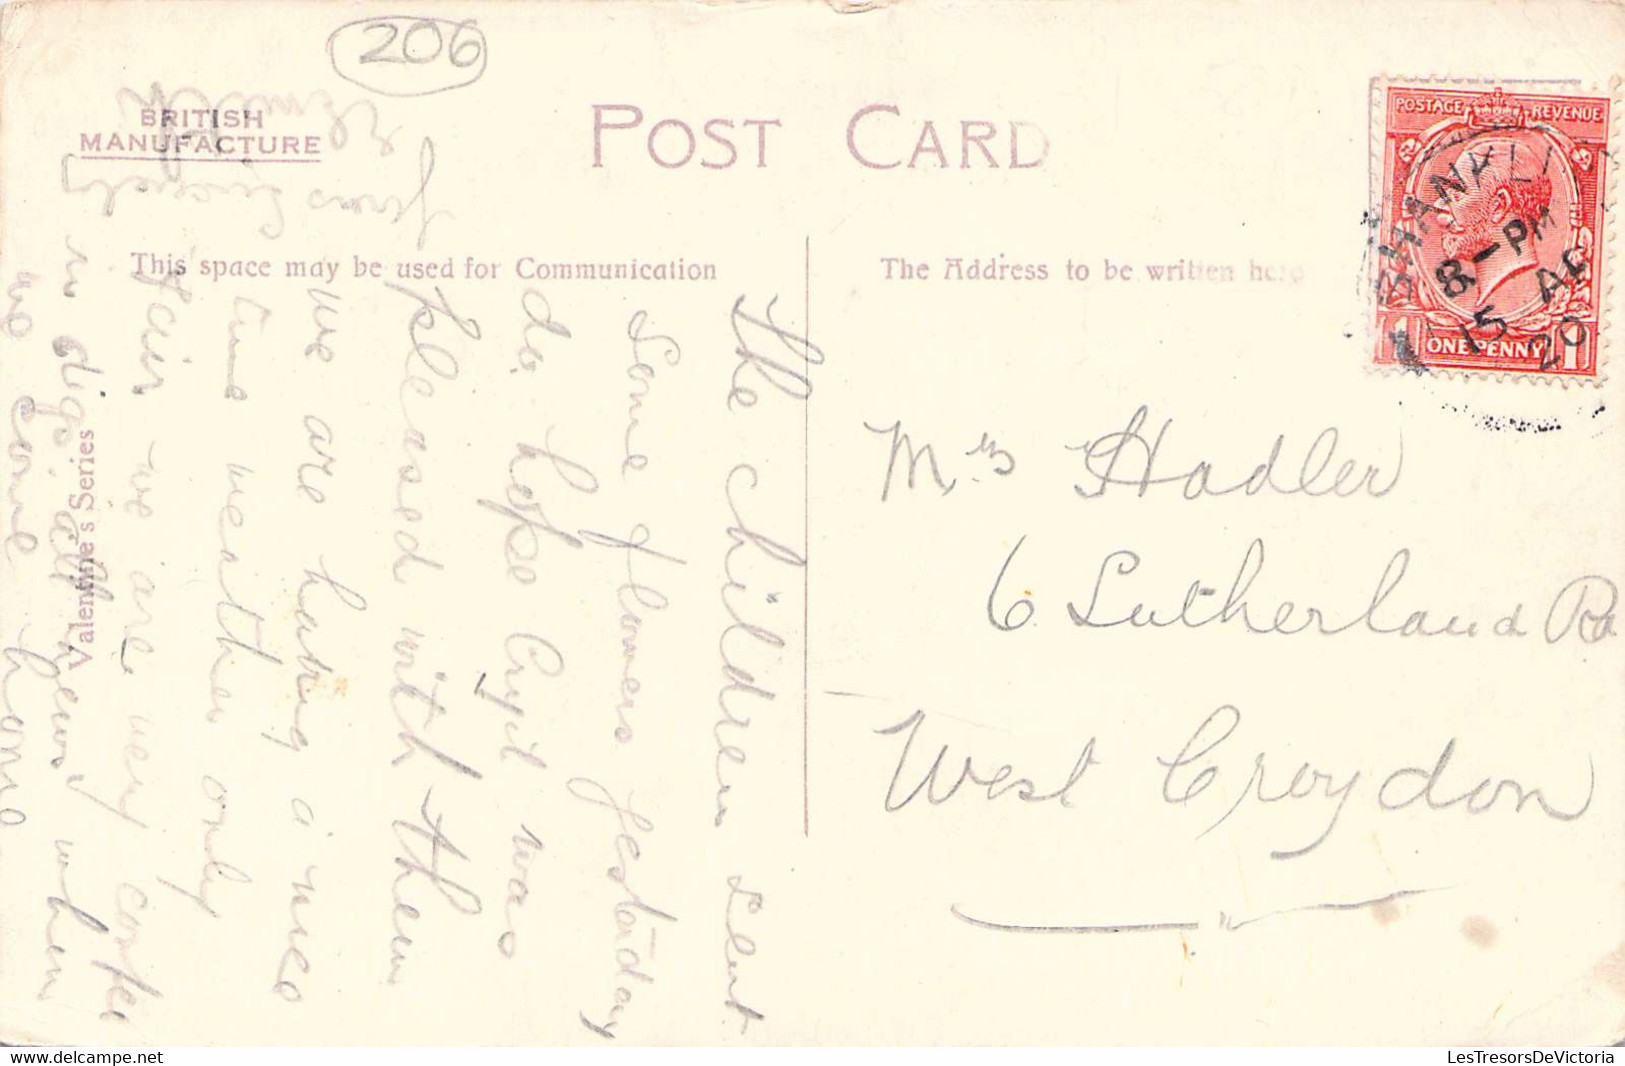 206
BRITISH
MANUFACTURE
POST CARD
This space may be used for Communication
The Address to be written here
Valentine's Series
POSTAGE REVENUE
1 ONE PENNY 1
SHANKLIN
8-PM
15 AU
20
Mrs Hadler
6 Sutherland Rd
West Croydon
The children sent
Some flowers yestaday
do hope Cyril was
pleased with them
we are having a nice
time weather only
fair we are very
in digs, all news when
we come home
yours Sincerely